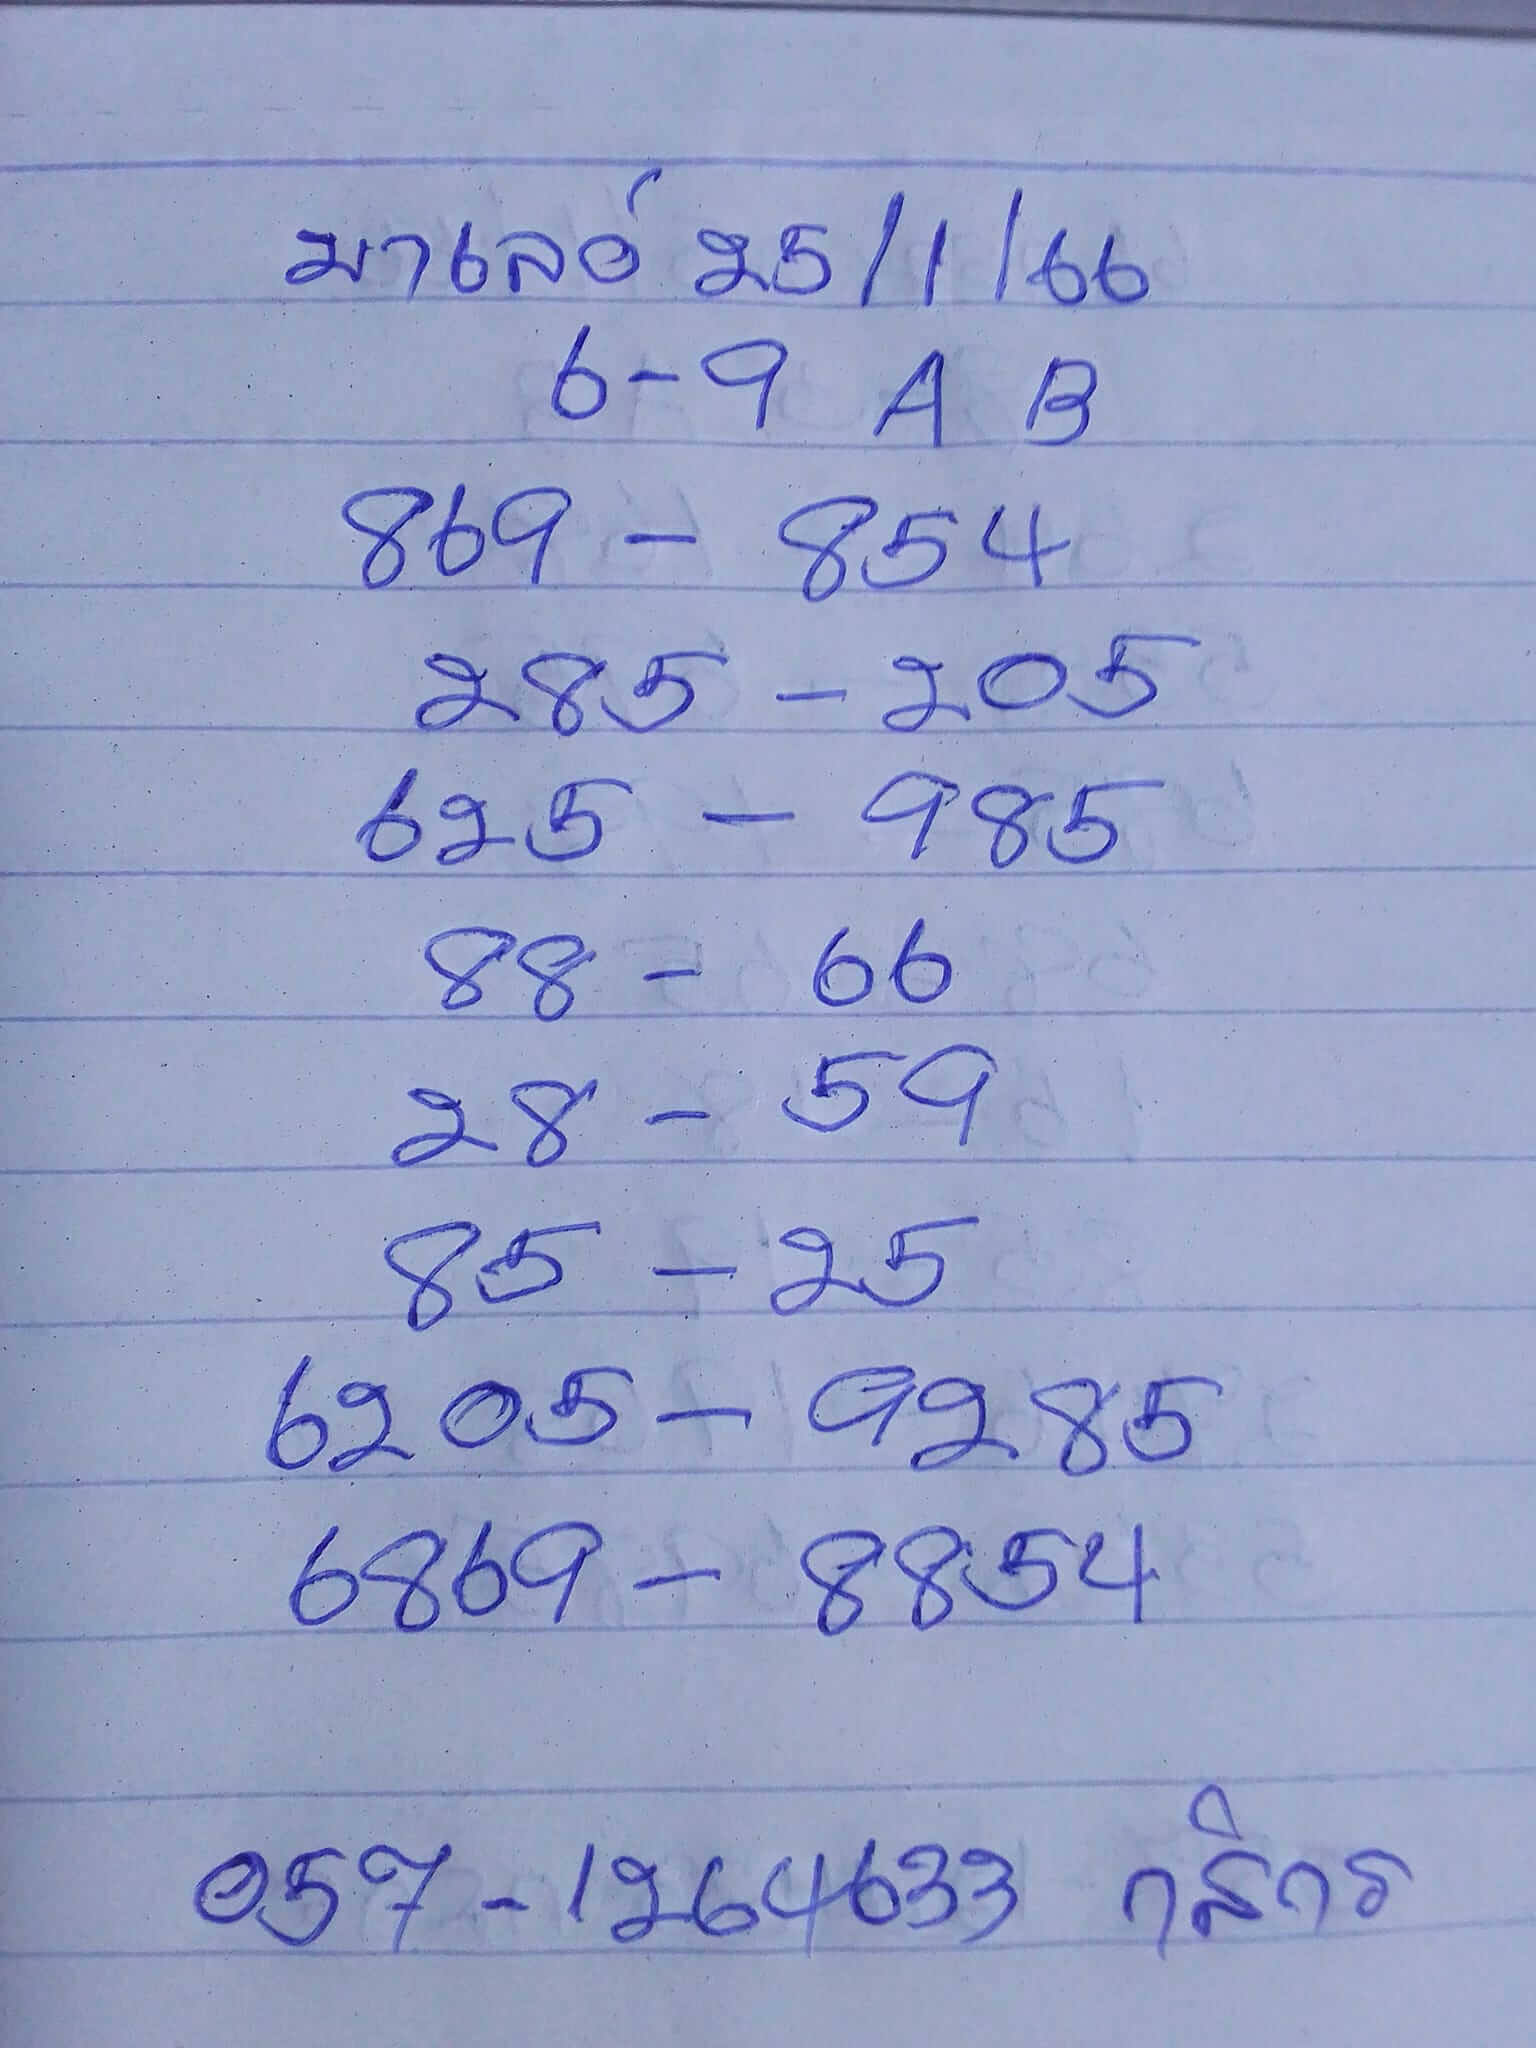 มาเลย์ 25/1/66
6-9 A B
869 - 854
285 - 205
625 - 985
88 - 66
28 - 59
85 - 25
6205 - 9285
6869 - 8854
057-1264633 กสิกร